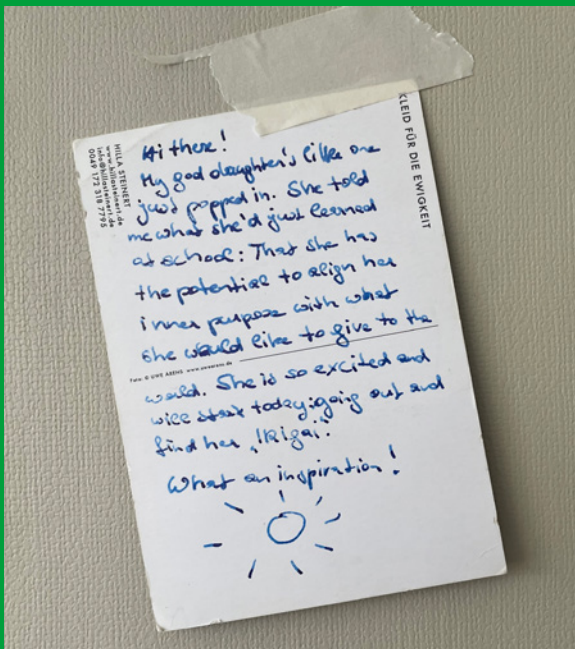 HILLA STEINERT
www.hillasteinert.de
info@hillasteinert.de
0049 172 318 7795
KLEID FÜR DIE EWIGKEIT
Hi there!
My god daughter's little one
just popped in. She told
me what she'd just learned
at school: That she has
the potential to align her
inner purpose with what
she would like to give to the
Foto: © UWE ARENS www.uwearens.de
world. She is so excited and
will start today: going out and
find her „Ikigai".
What an inspiration!